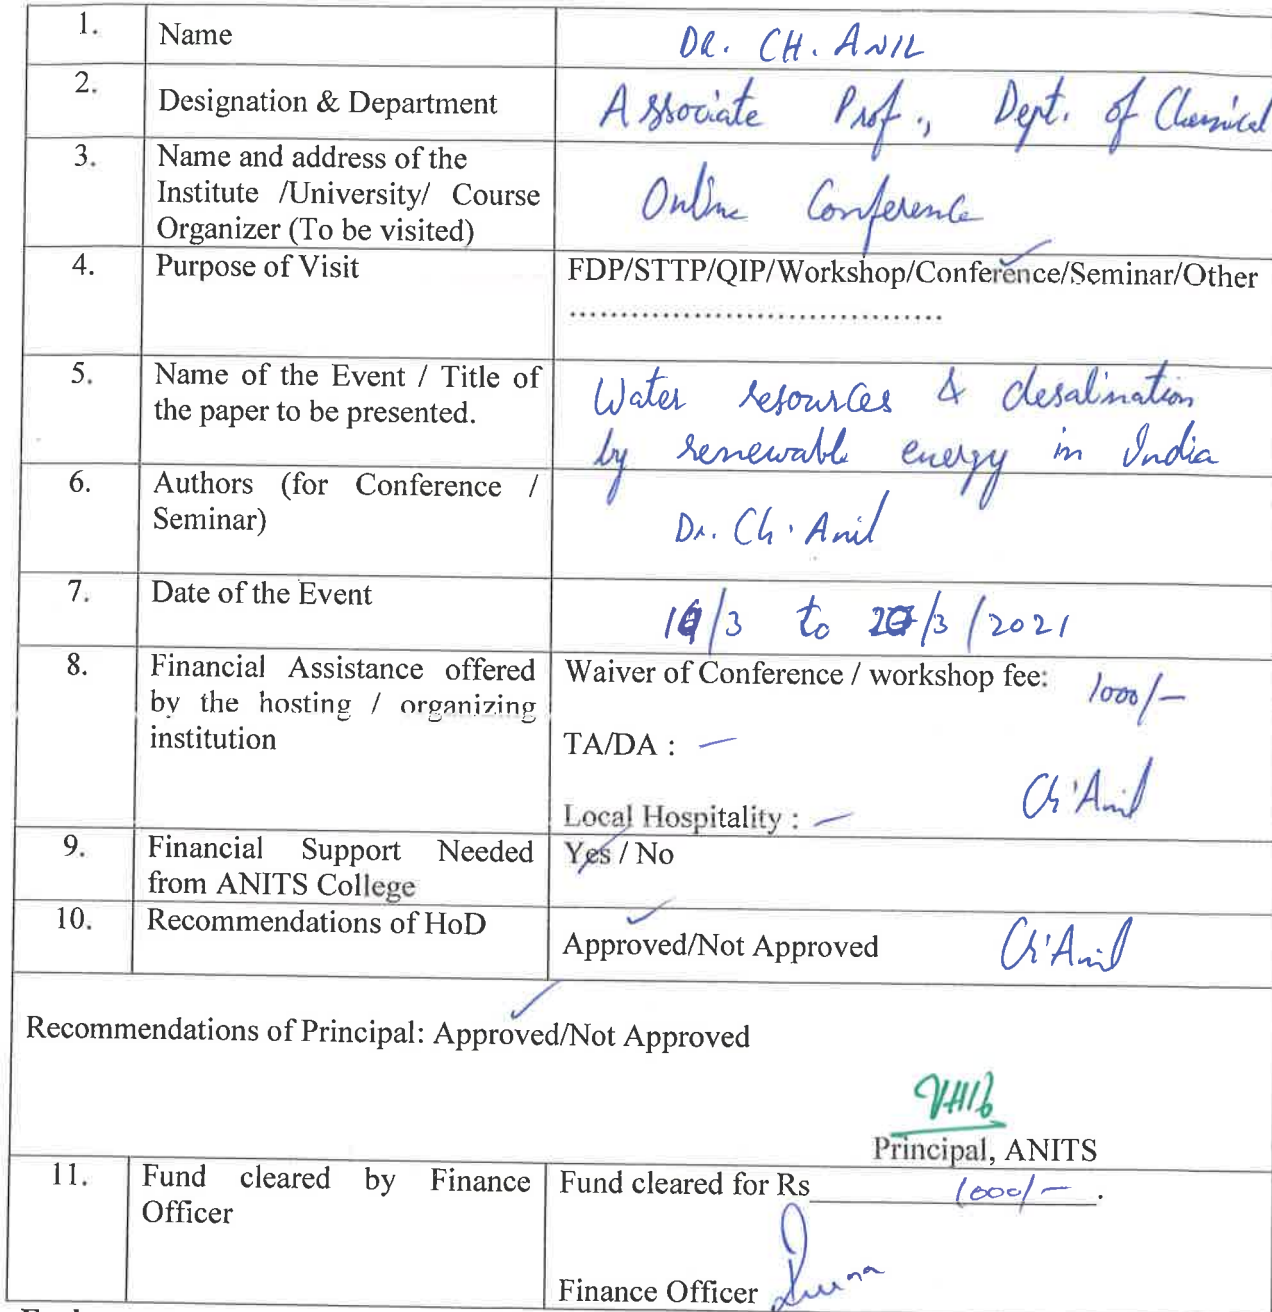 1. Name DR. CH. ANIL
2. Designation & Department Associate Prof., Dept. of Chemical
3. Name and address of the
Institute /University/ Course
Organizer (To be visited)
Online Conference
4. Purpose of Visit FDP/STTP/QIP/Workshop/Conference/Seminar/Other
....................................
5. Name of the Event / Title of
the paper to be presented.
Water resources & desalination
by renewable energy in India
6. Authors (for Conference /
Seminar)
Dr. Ch. Anil
7. Date of the Event /3 to /3/2021
8. Financial Assistance offered
by the hosting / organizing
institution
Waiver of Conference / workshop fee: 1000/-
TA/DA : -
Local Hospitality : -
Ch. Anil
9. Financial Support Needed
from ANITS College
Yes / No
10. Recommendations of HoD
Approved/Not Approved Ch. Anil
Recommendations of Principal: Approved/Not Approved
Principal, ANITS
11. Fund cleared by Finance
Officer
Fund cleared for Rs 1000/- .
Finance Officer